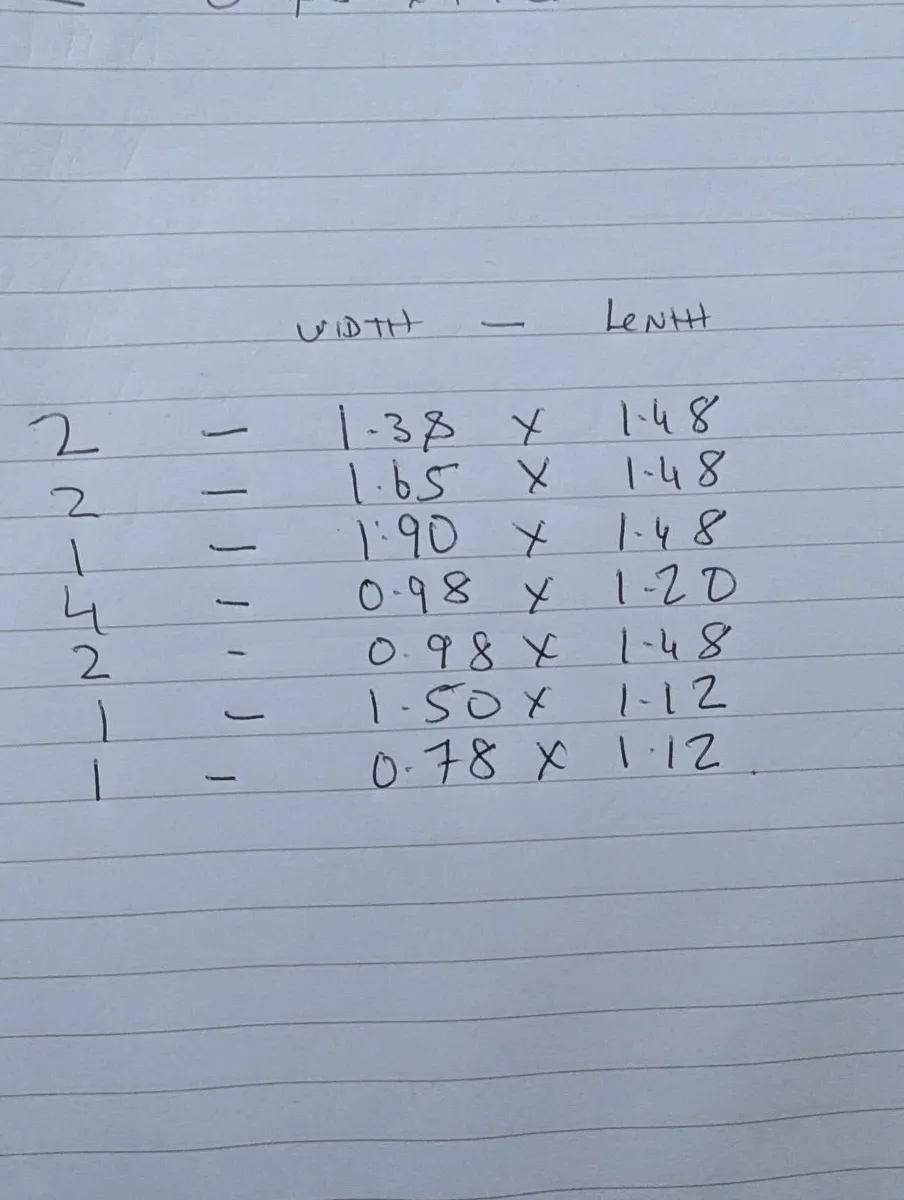 WIDTH - LENTH
2 - 1.38 x 1.48
2 - 1.65 x 1.48
1 - 1.90 x 1.48
4 - 0.98 x 1.20
2 - 0.98 x 1.48
1 - 1.50 x 1.12
1 - 0.78 x 1.12.